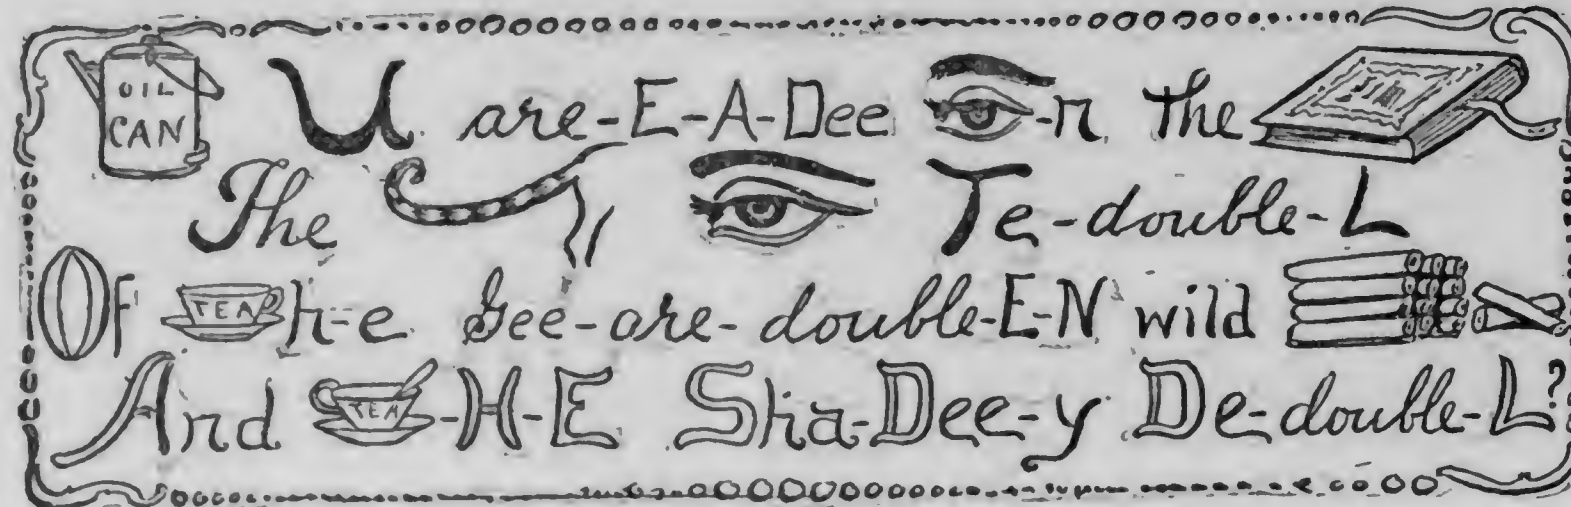 OIL
CAN U are-E-A-Dee -n the
The Te-double-L
Of TEA h-e Gee-are-double-E-N wild
And TEA -H-E Sha-Dee-y De-double-L?